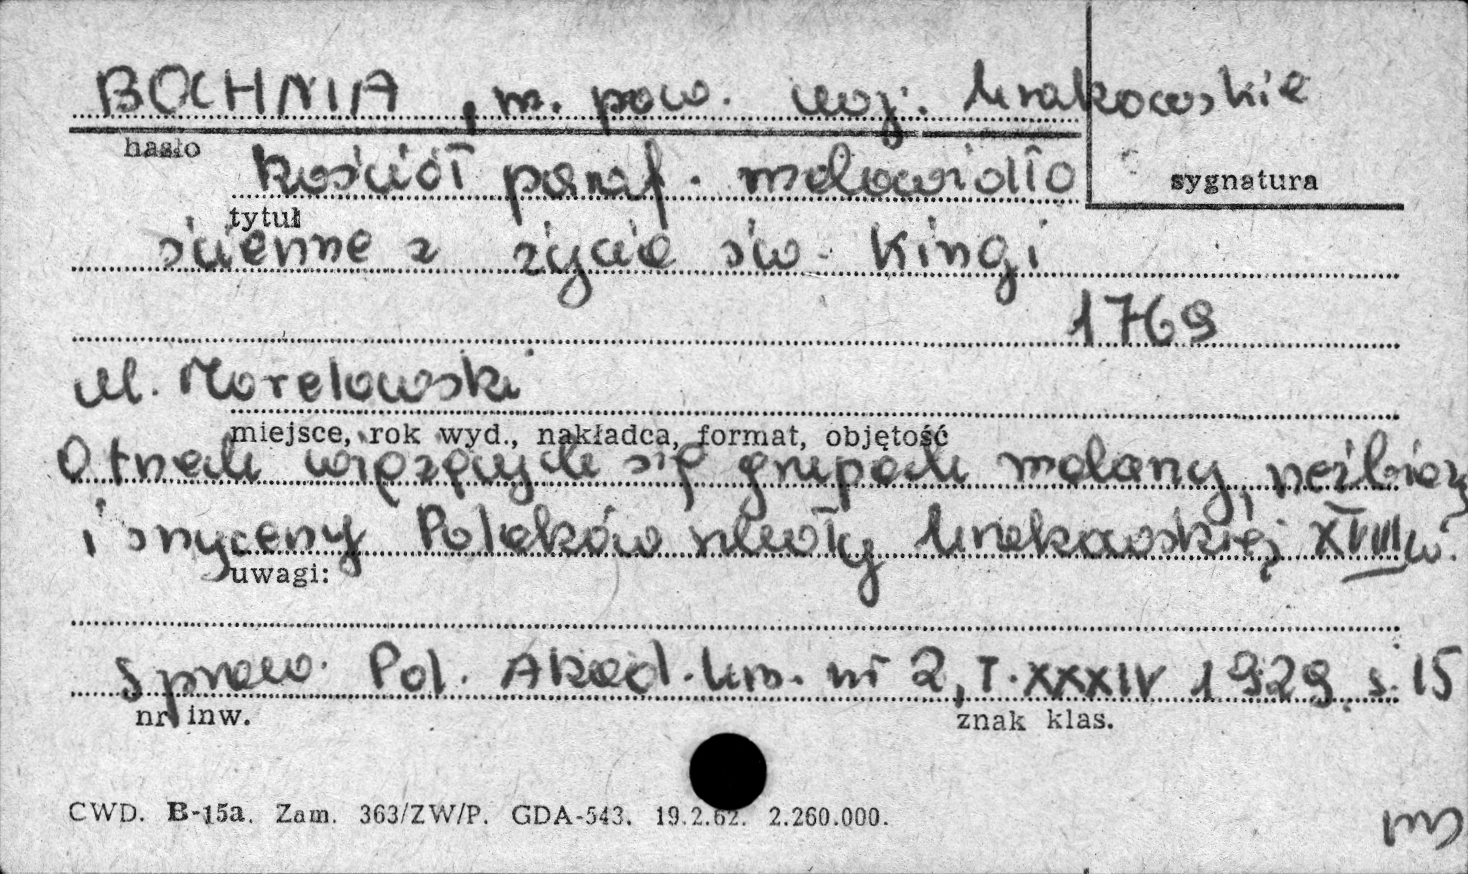 BOCHNIA, m. pow. woj. krakowskie
hasło
kościół paraf. malowidło
sygnatura
tytuł
ścienne z życia św. Kingi
1769
M. Morelowski
miejsce, rok wyd., nakładca, format, objętość
O trzech wiążących się grupach malarzy, rzeźbiarzy
i snycerzy Polaków szkoły krakowskiej XVIII w.
uwagi:
Spraw. Pol. Akad. Um. nr 2, T. XXXIV 1929. s. 15
nr inw.
znak klas.
CWD. B-15a. Zam. 363/ZW/P. GDA-543. 19.2.62. 2.260.000.